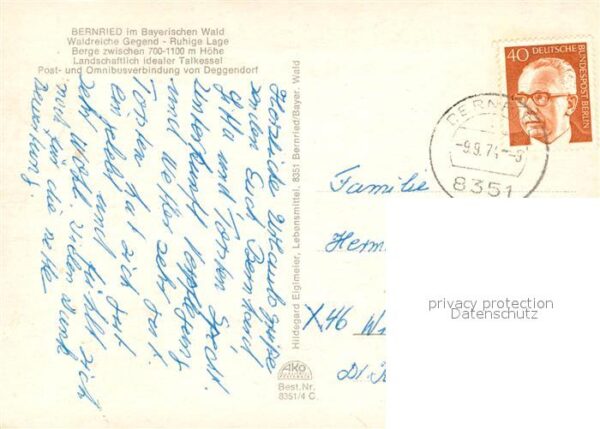 BERNRIED im Bayerischen Wald
Waldreiche Gegend - Ruhige Lage
Berge zwischen 700-1100 m Höhe
Landschaftlich idealer Talkessel
Post- und Omnibusverbindung von Deggendorf
Herzliche Urlaubsgrüße
senden Euch Bernhard
und Torsten
Unterkunft Verpflegung
und Wetter sehr gut.
Torsten hat sich gut
eingelebt und fühlt sich
sehr wohl. Vielen Dank
noch für die nette
Bewirtung.
Hildegard Eiglmeier, Lebensmittel, 8351 Bernried/Bayer. Wald
ako
Best.Nr.
8351/4 C.
40 DEUTSCHE
BUNDESPOST BERLIN
BERNR
-9.9.74-
8351
Familie
Herm
X46 W
privacy protection
Datenschutz